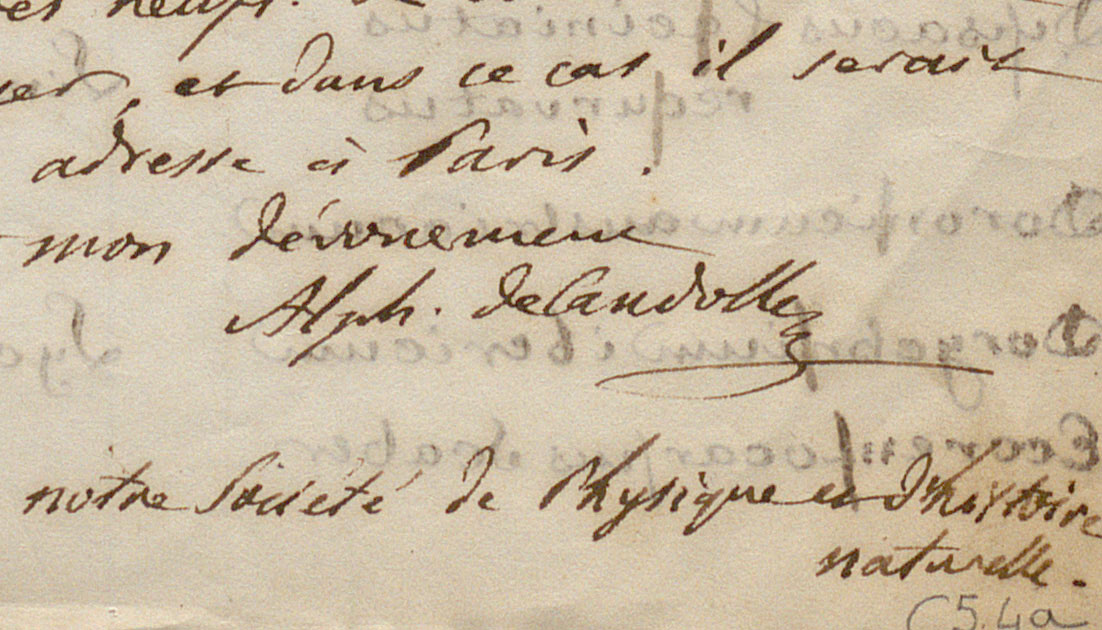 et neufs.
et dans ce cas il serait
adresse à Paris.
mon dévouement
Alph. deCandolle
notre Société de Physique et d'histoire
naturelle.
C5.4a